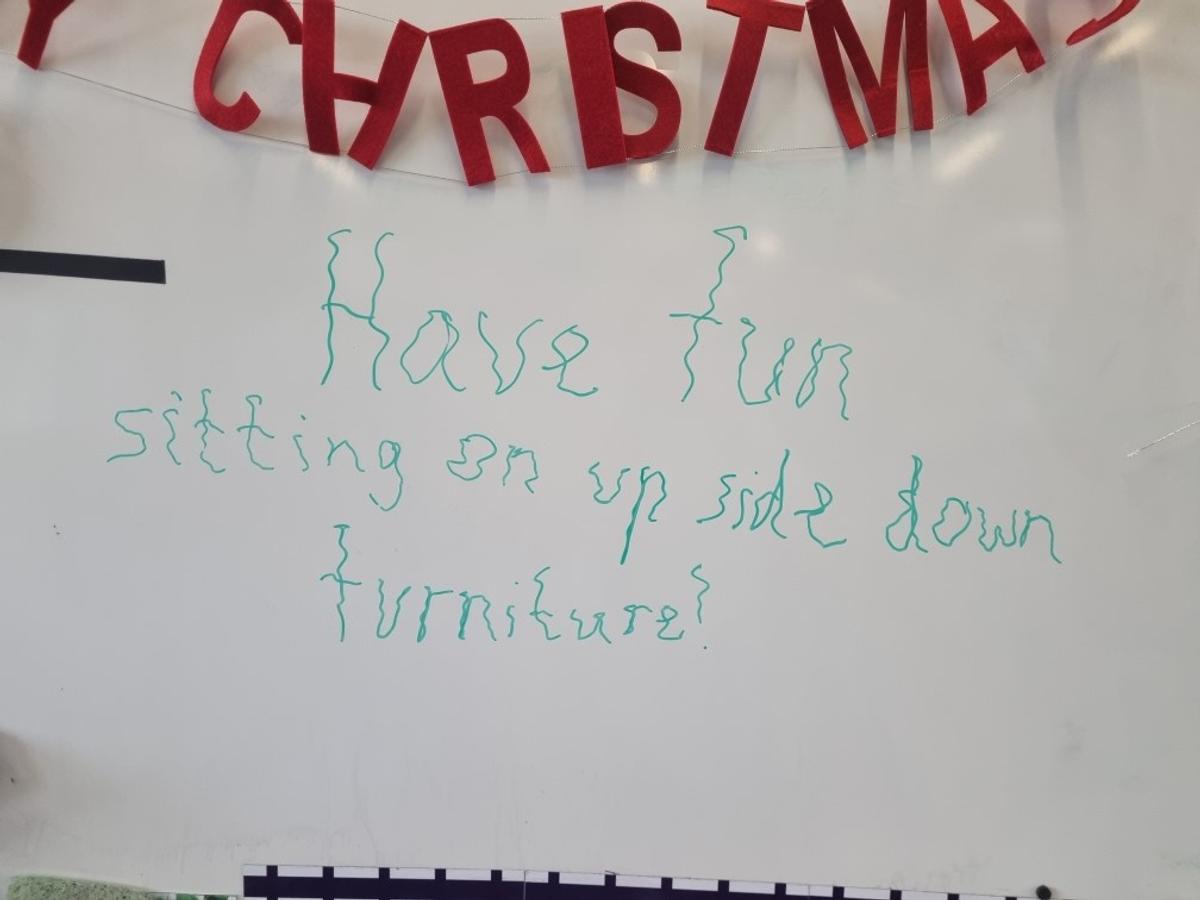 Y CHRISTMAS
Have fun
sitting on up side down
furniture!